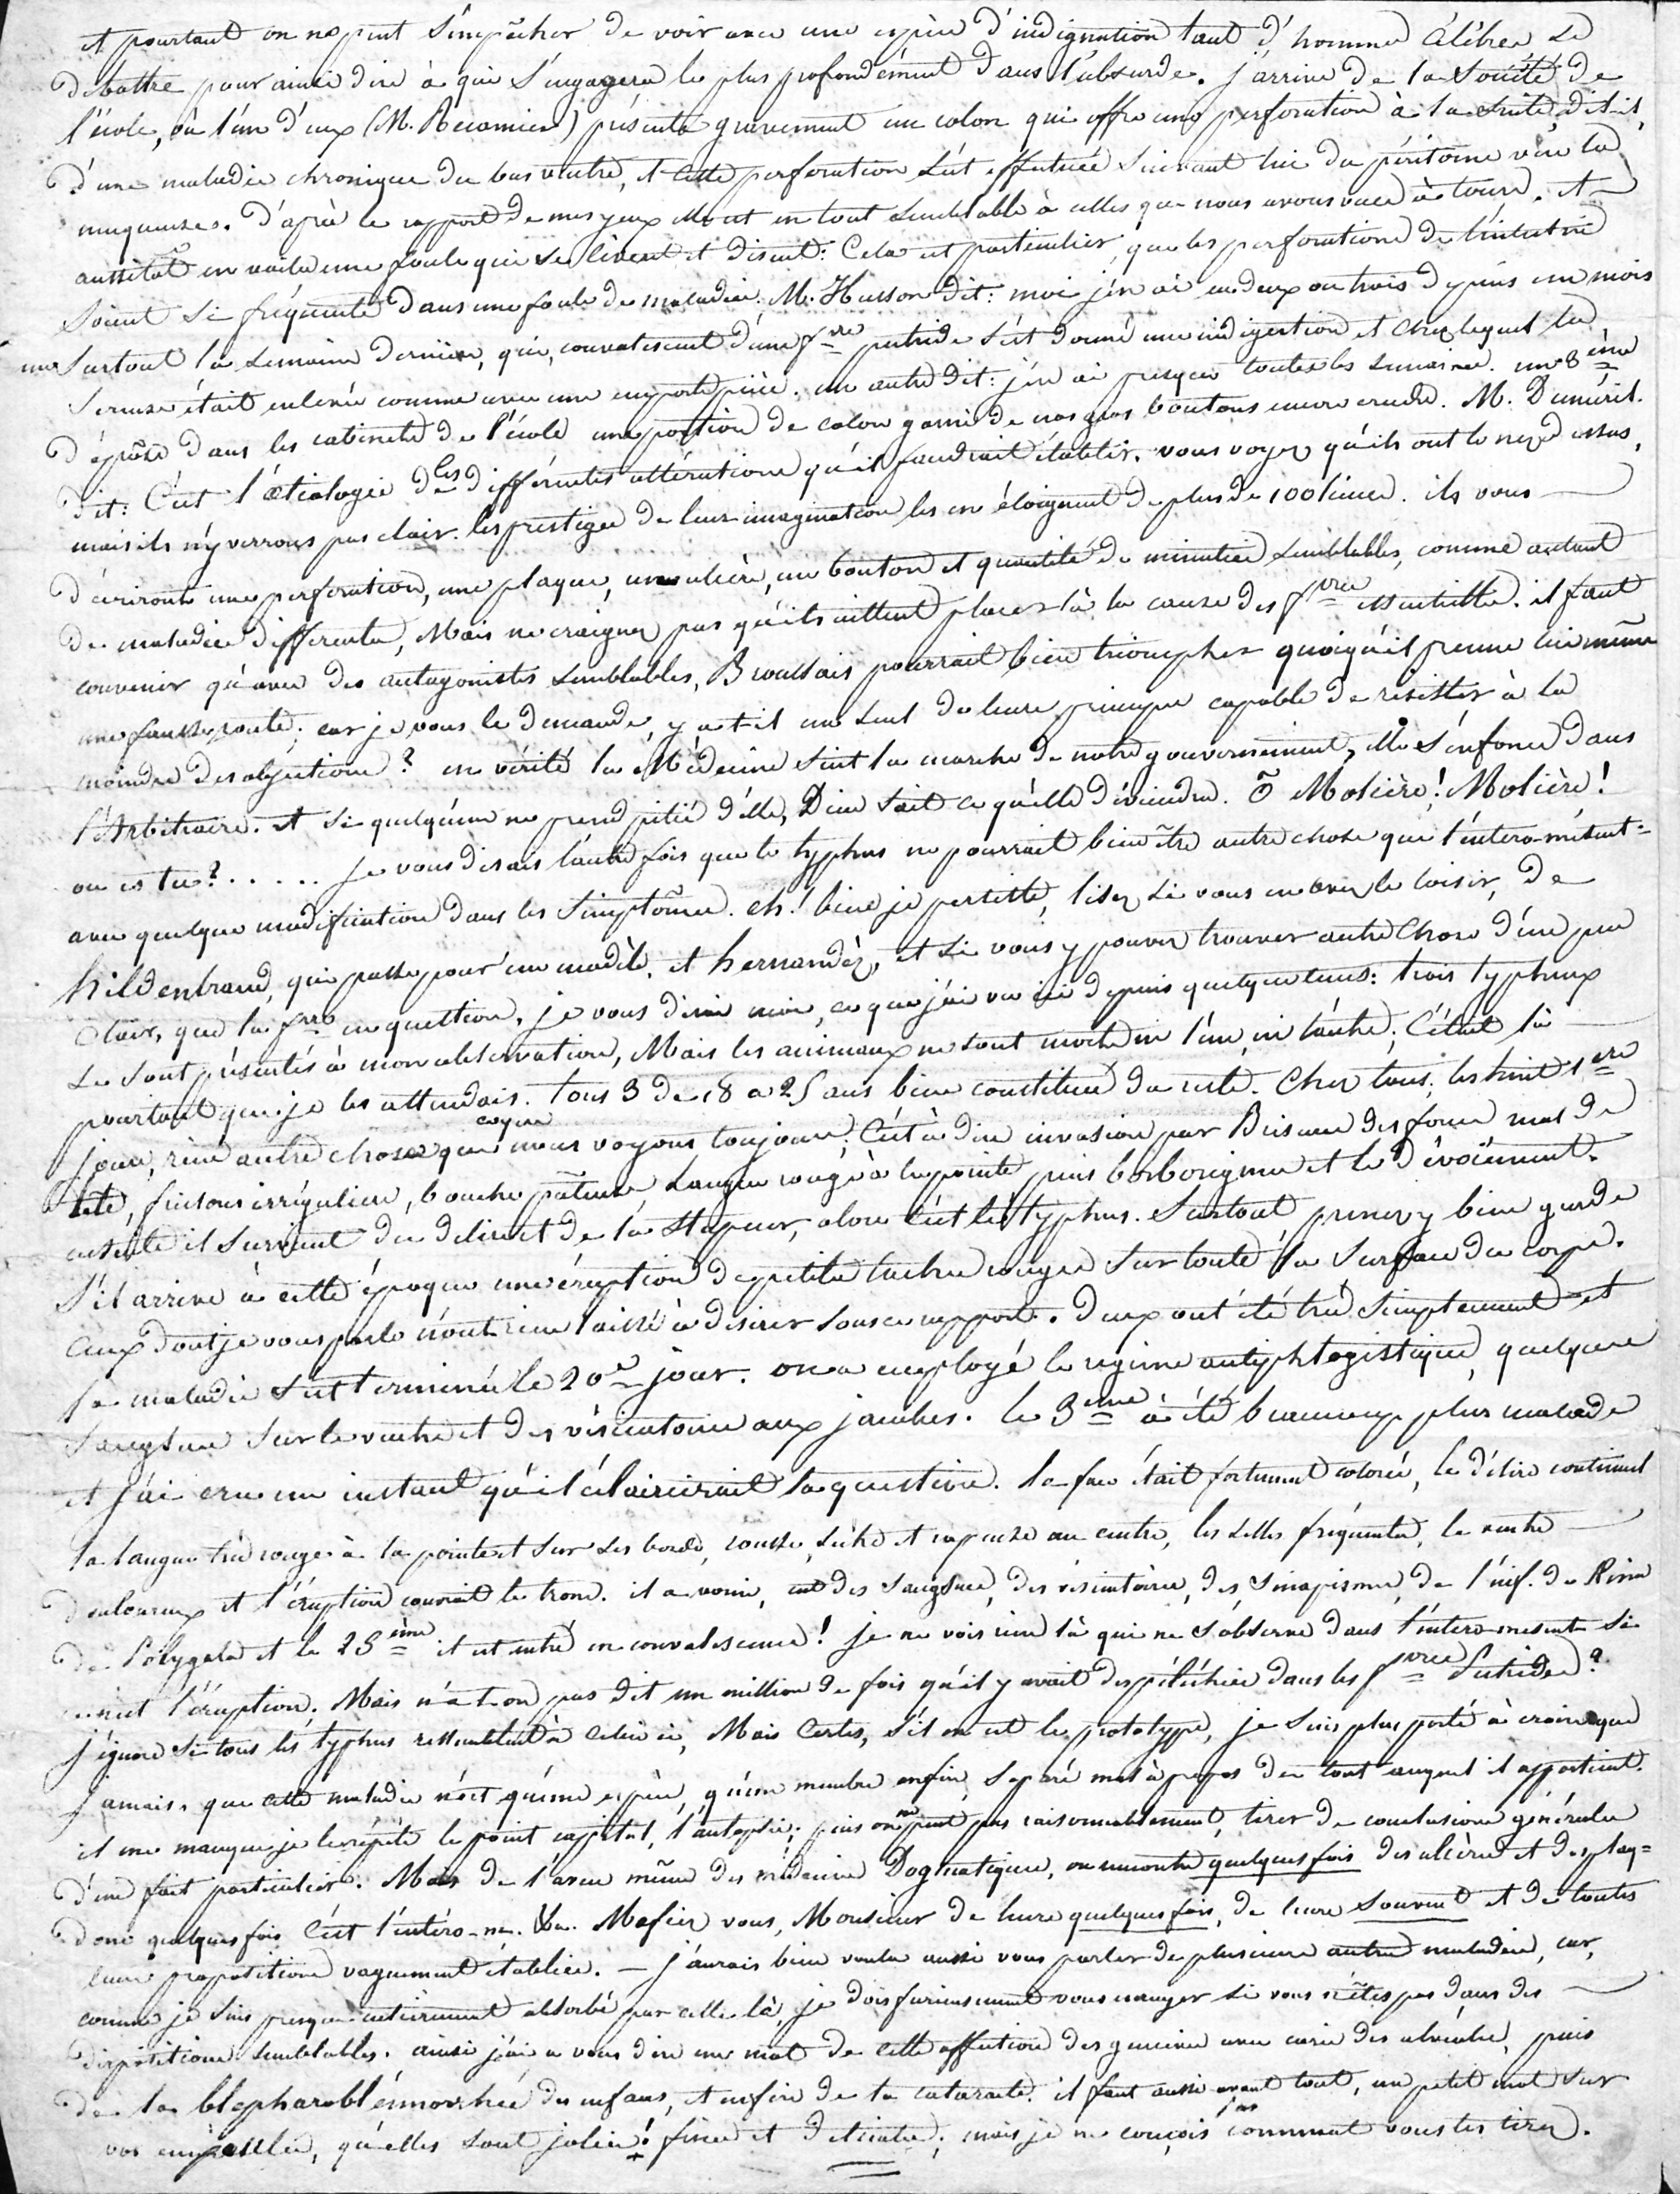 et pourtant on ne peut s'empêcher de voir avec une espèce d'indignation tant d'hommes célèbres se
debattre pour ainsi dire à qui s'engagera le plus profondément dans l'absurde. j'arrive de la Société de
l'école, où l'un d'eux (M. Recamier) présenta gravement un colon qui offre une perforation à la suite, dit-il,
d'une maladie chronique du bas ventre, et cette perforation s'est effectuée suivant lui du péritoine vers la
muqueuse. D'après le rapport de mes yeux elle est en tout semblable à celles que nous avons vues à tours. Et
aussitôt en voilà une foule qui se lèvent et disent: Cela est particulier, que les perforations de l'intestin
soient si fréquentes dans une foule de maladies. M. Husson dit: moi j'en ai eu deux ou trois depuis un mois
un surtout la semaine dernière, qui, convalescent d'une fvre putride s'est donné une indigestion et chez lequel la
sereuse était enlevée comme avec une emporte pièce. un autre dit: j'en ai presque toutes les semaines. un 3ème
dépose dans les cabinets de l'école une portion de colon garni de nos gros boutons encore cruds. M. Duméril
dit: C'est l'œtiologie de ces différentes altérations qu'il faudrait établir. vous voyez qu'ils ont le nez dessus,
mais ils n'y verrons pas clair. les prestiges de leur imagination les en éloignent de plus de 100 lieues. ils vous
décriront une perforation, une plaque, un ulcère, un bouton et quantité de minuties semblables, comme autant
de maladies differentes, Mais ne craignez pas qu'ils aillent placer là la cause des fvres essentielles. il faut
convenir qu'avec des antagonistes semblables, Broussais pourrait bien triompher quoiqu'il prenne lui même
une fausse route; car je vous le demande, y a-t-il un seul de leurs principes capable de resister à la
moindre des objections? en vérité la Médecine suit la marche de notre gouvernement, elle s'enfonce dans
l'Arbitraire. et si quelqu'un ne prend pitié d'elle, Dieu sait ce qu'elle déviendra. ô Molière! Molière!
ou es tu?..... Je vous disais l'autre fois que le typhus ne pourrait bien être autre chose que l'entero-mésent=
avec quelque modification dans les simptômes. eh! bien je persiste, lisez si vous en avez le loisir, de
hildenbrand, qui passe pour un modèle, et hernandèz, et si vous y pouvez trouver autre chose d'un peu
clair, que la fvre en question, je vous dirai moi, ce que j'ai vu ici depuis quelque tems: trois typheux
se sont présentés à mon observation, Mais les animaux ne sont morts ni l'un ni l'autre; C'était là
pourtant que je les attendais. tous 3 de 18 a 25 ans bien constitués du reste. Chez tous, les huit 1ers
jours, rien autre chose que ce que nous voyons toujours, C'est à dire invasion par Brisure des forces mal de
tête, frissons irréguliers, bouche pâteuse langue rouge à la pointe puis borborigmes et le dévoiement.
ensuite il survient du delire et de la stupeur, alors c'est le typhus. Surtout prenez y bien garde
s'il arrive à cette époque une éruption de petites taches rouges sur toute la surface du corps.
Ceux dont je vous parle n'ont rien laissé à desirer sous ce rapport. deux ont été très simplement et
la maladie s'est terminée le 20e jour. on a employé le regime antiphlogistique, quelques
sangsues sur le ventre et des vésicatoires aux jambes. le 3ème à été beaucoup plus malade
et j'ai cru un instant qu'il éclaircirait la question. la face était fortement colorée, le délire continuel
la langue très rouge à la pointe et sur ses bords, rousse, sèche et rapeuse au centre, les selles fréquentes, le ventre
douloureux et l'éruption couvrait le tronc. il a vomi, eut des sangsues, des vésicatoires, des sinapismes, de l'inf. de Kina
de Polygala et le 25ème il est entré en convalescence! je ne vois rien là qui ne s'observe dans l'entero-mesent si
n'est l'éruption. Mais n'a-t-on pas dit un million de fois qu'il y avait des pétéchies dans les fvres Putrides?
j'ignore si tous les typhus ressemblent à celui ci, Mais Certes, s'il en est le prototype, je suis plus porté à croire que
jamais, que cette maladie n'est qu'une espèce, qu'un membre enfin, séparé mal à propos du tout auquel il appartient.
il me manque je le répète le point capital, l'autopsie; puis on ne peut pas raisonnablement, tirer de conclusions générales
d'un fait particulier. Mais de l'aveu même des médecins Dogmatiques, on rencontre quelques fois des ulcères et des plaq=
donc quelques fois C'est l'entéro-m. &a. Mefiez vous, Monsieur de leurs quelques fois, de leurs souvent et de toutes
leurs propositions vaguement établies. — J'aurais bien voulu aussi vous parler de plusieurs autres maladies, car,
comme je suis presque entièrement absorbé par celle là, je dois furieusement vous ennuyer si vous n'êtes pas dans des
dispositions semblables. ainsi j'ai a vous dire un mot de cette affection des gencives avec carie des alvéoles, puis
de la blepharoblénnorrhée des enfans, et enfin de la cataracte. il faut aussi avant tout, un petit mot sur
vos empeslles, qu'elles sont jolies! fines et delicates; mais je ne conçois pas comment vous les tirez.